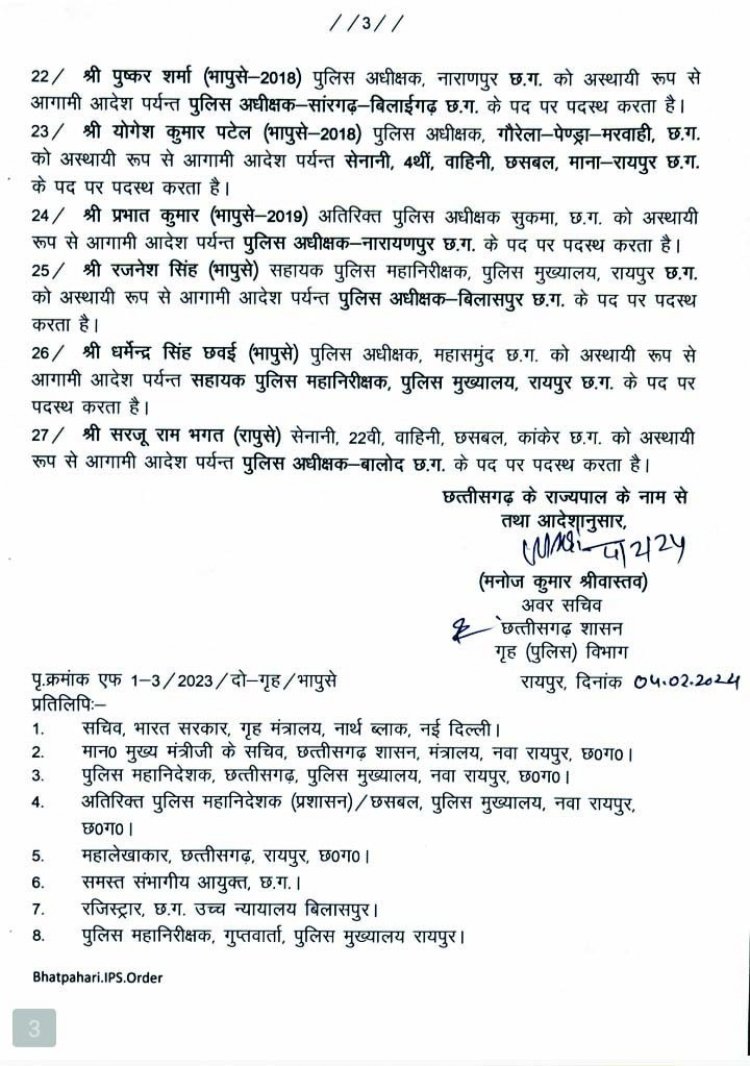 //3//
22/ श्री पुष्कर शर्मा (भापुसे–2018) पुलिस अधीक्षक, नाराणपुर छ.ग. को अस्थायी रूप से
आगामी आदेश पर्यन्त पुलिस अधीक्षक–सांरगढ़–बिलाईगढ़ छ.ग. के पद पर पदस्थ करता है।
23/ श्री योगेश कुमार पटेल (भापुसे–2018) पुलिस अधीक्षक, गौरेला–पेण्ड्रा–मरवाही, छ.ग.
को अस्थायी रूप से आगामी आदेश पर्यन्त सेनानी, 4थीं, वाहिनी, छसबल, माना–रायपुर छ.ग.
के पद पर पदस्थ करता है।
24/ श्री प्रभात कुमार (भापुसे–2019) अतिरिक्त पुलिस अधीक्षक सुकमा, छ.ग. को अस्थायी
रूप से आगामी आदेश पर्यन्त पुलिस अधीक्षक–नारायणपुर छ.ग. के पद पर पदस्थ करता है।
25/ श्री रजनेश सिंह (भापुसे) सहायक पुलिस महानिरीक्षक, पुलिस मुख्यालय, रायपुर छ.ग.
को अस्थायी रूप से आगामी आदेश पर्यन्त पुलिस अधीक्षक–बिलासपुर छ.ग. के पद पर पदस्थ
करता है।
26/ श्री धर्मेन्द्र सिंह छवई (भापुसे) पुलिस अधीक्षक, महासमुंद छ.ग. को अस्थायी रूप से
आगामी आदेश पर्यन्त सहायक पुलिस महानिरीक्षक, पुलिस मुख्यालय, रायपुर छ.ग. के पद पर
पदस्थ करता है।
27/ श्री सरजू राम भगत (रापुसे) सेनानी, 22वी, वाहिनी, छसबल, कांकेर छ.ग. को अस्थायी
रूप से आगामी आदेश पर्यन्त पुलिस अधीक्षक–बालोद छ.ग. के पद पर पदस्थ करता है।
छत्तीसगढ़ के राज्यपाल के नाम से
तथा आदेशानुसार,
(मनोज कुमार श्रीवास्तव)
अवर सचिव
छत्तीसगढ़ शासन
गृह (पुलिस) विभाग
पृ.क्रमांक एफ 1–3/2023/दो–गृह/भापुसे रायपुर, दिनांक 04.02.2024
प्रतिलिपिः–
1. सचिव, भारत सरकार, गृह मंत्रालय, नार्थ ब्लाक, नई दिल्ली।
2. मान0 मुख्य मंत्रीजी के सचिव, छत्तीसगढ़ शासन, मंत्रालय, नवा रायपुर, छ0ग0।
3. पुलिस महानिदेशक, छत्तीसगढ़, पुलिस मुख्यालय, नवा रायपुर, छ0ग0।
4. अतिरिक्त पुलिस महानिदेशक (प्रशासन)/छसबल, पुलिस मुख्यालय, नवा रायपुर,
छ0ग0।
5. महालेखाकार, छत्तीसगढ़, रायपुर, छ0ग0।
6. समस्त संभागीय आयुक्त, छ.ग.।
7. रजिस्ट्रार, छ.ग. उच्च न्यायालय बिलासपुर।
8. पुलिस महानिरीक्षक, गुप्तवार्ता, पुलिस मुख्यालय रायपुर।
Bhatpahari.IPS.Order
3